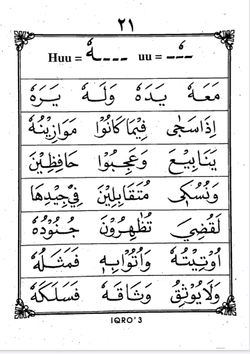 ٢١
Huu = ـــهٗ uu = ــُـ
مَعَهٗ يَدَهٗ وَلَهٗ يَرَهٗ
اِذَا سَجٰى فِيْمَا كَانُوْا مَوَازِيْنُهٗ
يَنَابِيْعَ وَعَجِبُوْا حَافِظِيْنَ
وَنُسُكِىْ مُتَقَابِلِيْنَ فِيْ جِيْدِهَا
لَقُضِيَ تُظْهِرُوْنَ جُنُوْدُهٗ
اُوْتِيْتُهٗ وَاُتُوْابِهٖ فَمَثَلُهٗ
وَلَا يُوْثِقُ وَثَاقَهٗ فَسَلَكَهٗ
IQRO'3